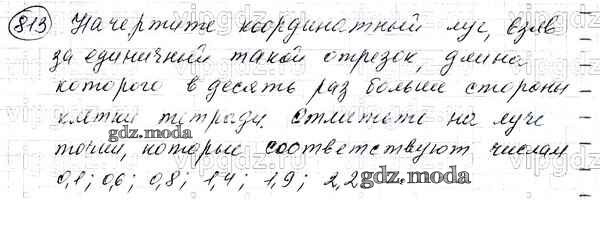 813 Начертите координатный луч, взяв
за единичный такой отрезок, длина
которого в десять раз больше стороны
клетки тетради. Отметьте на луче
gdz.moda
точки, которые соответствуют числам
0,1; 0,6; 0,8; 1,4; 1,9; 2,2
gdz.moda